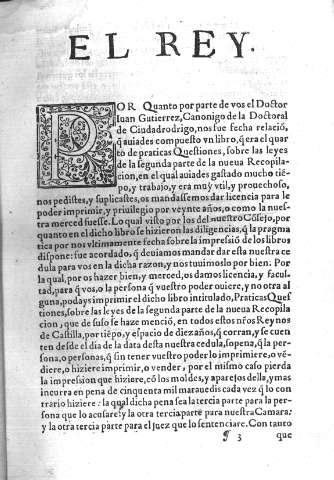 EL REY.
POR Quanto por parte de vos el Doctor
Iuan Gutierrez, Canonigo de la Doctoral
de Ciudadrodrigo, nos fue fecha relaciõ,
q̃ auiades compuesto vn libro, q̃ era el quar
to de praticas Questiones, sobre las leyes
de la segunda parte de la nueua Recopila-
cion, en el qual auiades gastado mucho tiẽ-
po, y trabajo, y era muy vtil, y prouechoso,
nos pedistes, y suplicastes, os mandassemos dar licencia para le
poder imprimir, y priuilegio por veynte años, o como la nues-
tra merced fuesse. Lo qual visto por los del nuestro Cõsejo, por
quanto en el dicho libro se hizieron las diligencias, q̃ la pragma
tica por nos vltimamente fecha sobre la impresiõ de los libros
dispone: fue acordado, q̃ deuiamos mandar dar esta nuestra ce
dula para vos en la dicha razon, y nos tuuimoslo por bien. Por
la qual, por os hazer bien, y merced, os damos licencia, y facul-
tad, para q̃ vos, o la persona q̃ vuestro poder ouiere, y no otra al
guna, podays imprimir el dicho libro intitulado, Praticas Ques
tiones, sobre las leyes de la segunda parte de la nueua Recopila
cion, que de suso se haze menciõ, en todos estos nr̃os Reynos
de Castilla, por tiẽpo, y espacio de diez años, q̃ corran, y se cuen
ten desde el dia de la data desta nuestra cedula, so pena, q̃ la per
sona, o personas, q̃ sin tener vuestro poder lo imprimiere, o vẽ-
diere, o hiziere imprimir, o vender, por el mismo caso pierda
la impression que hiziere, cõ los moldes, y aparejos della, y mas
incurra en pena de cinquenta mil marauedis cada vez q̃ lo con
trario hiziere: la qual dicha pena sea la tercia parte para la per-
sona que lo acusare: y la otra tercia parte para nuestra Camara:
y la otra tercia parte para el juez que lo sentenciare. Con tanto
¶ 3 que